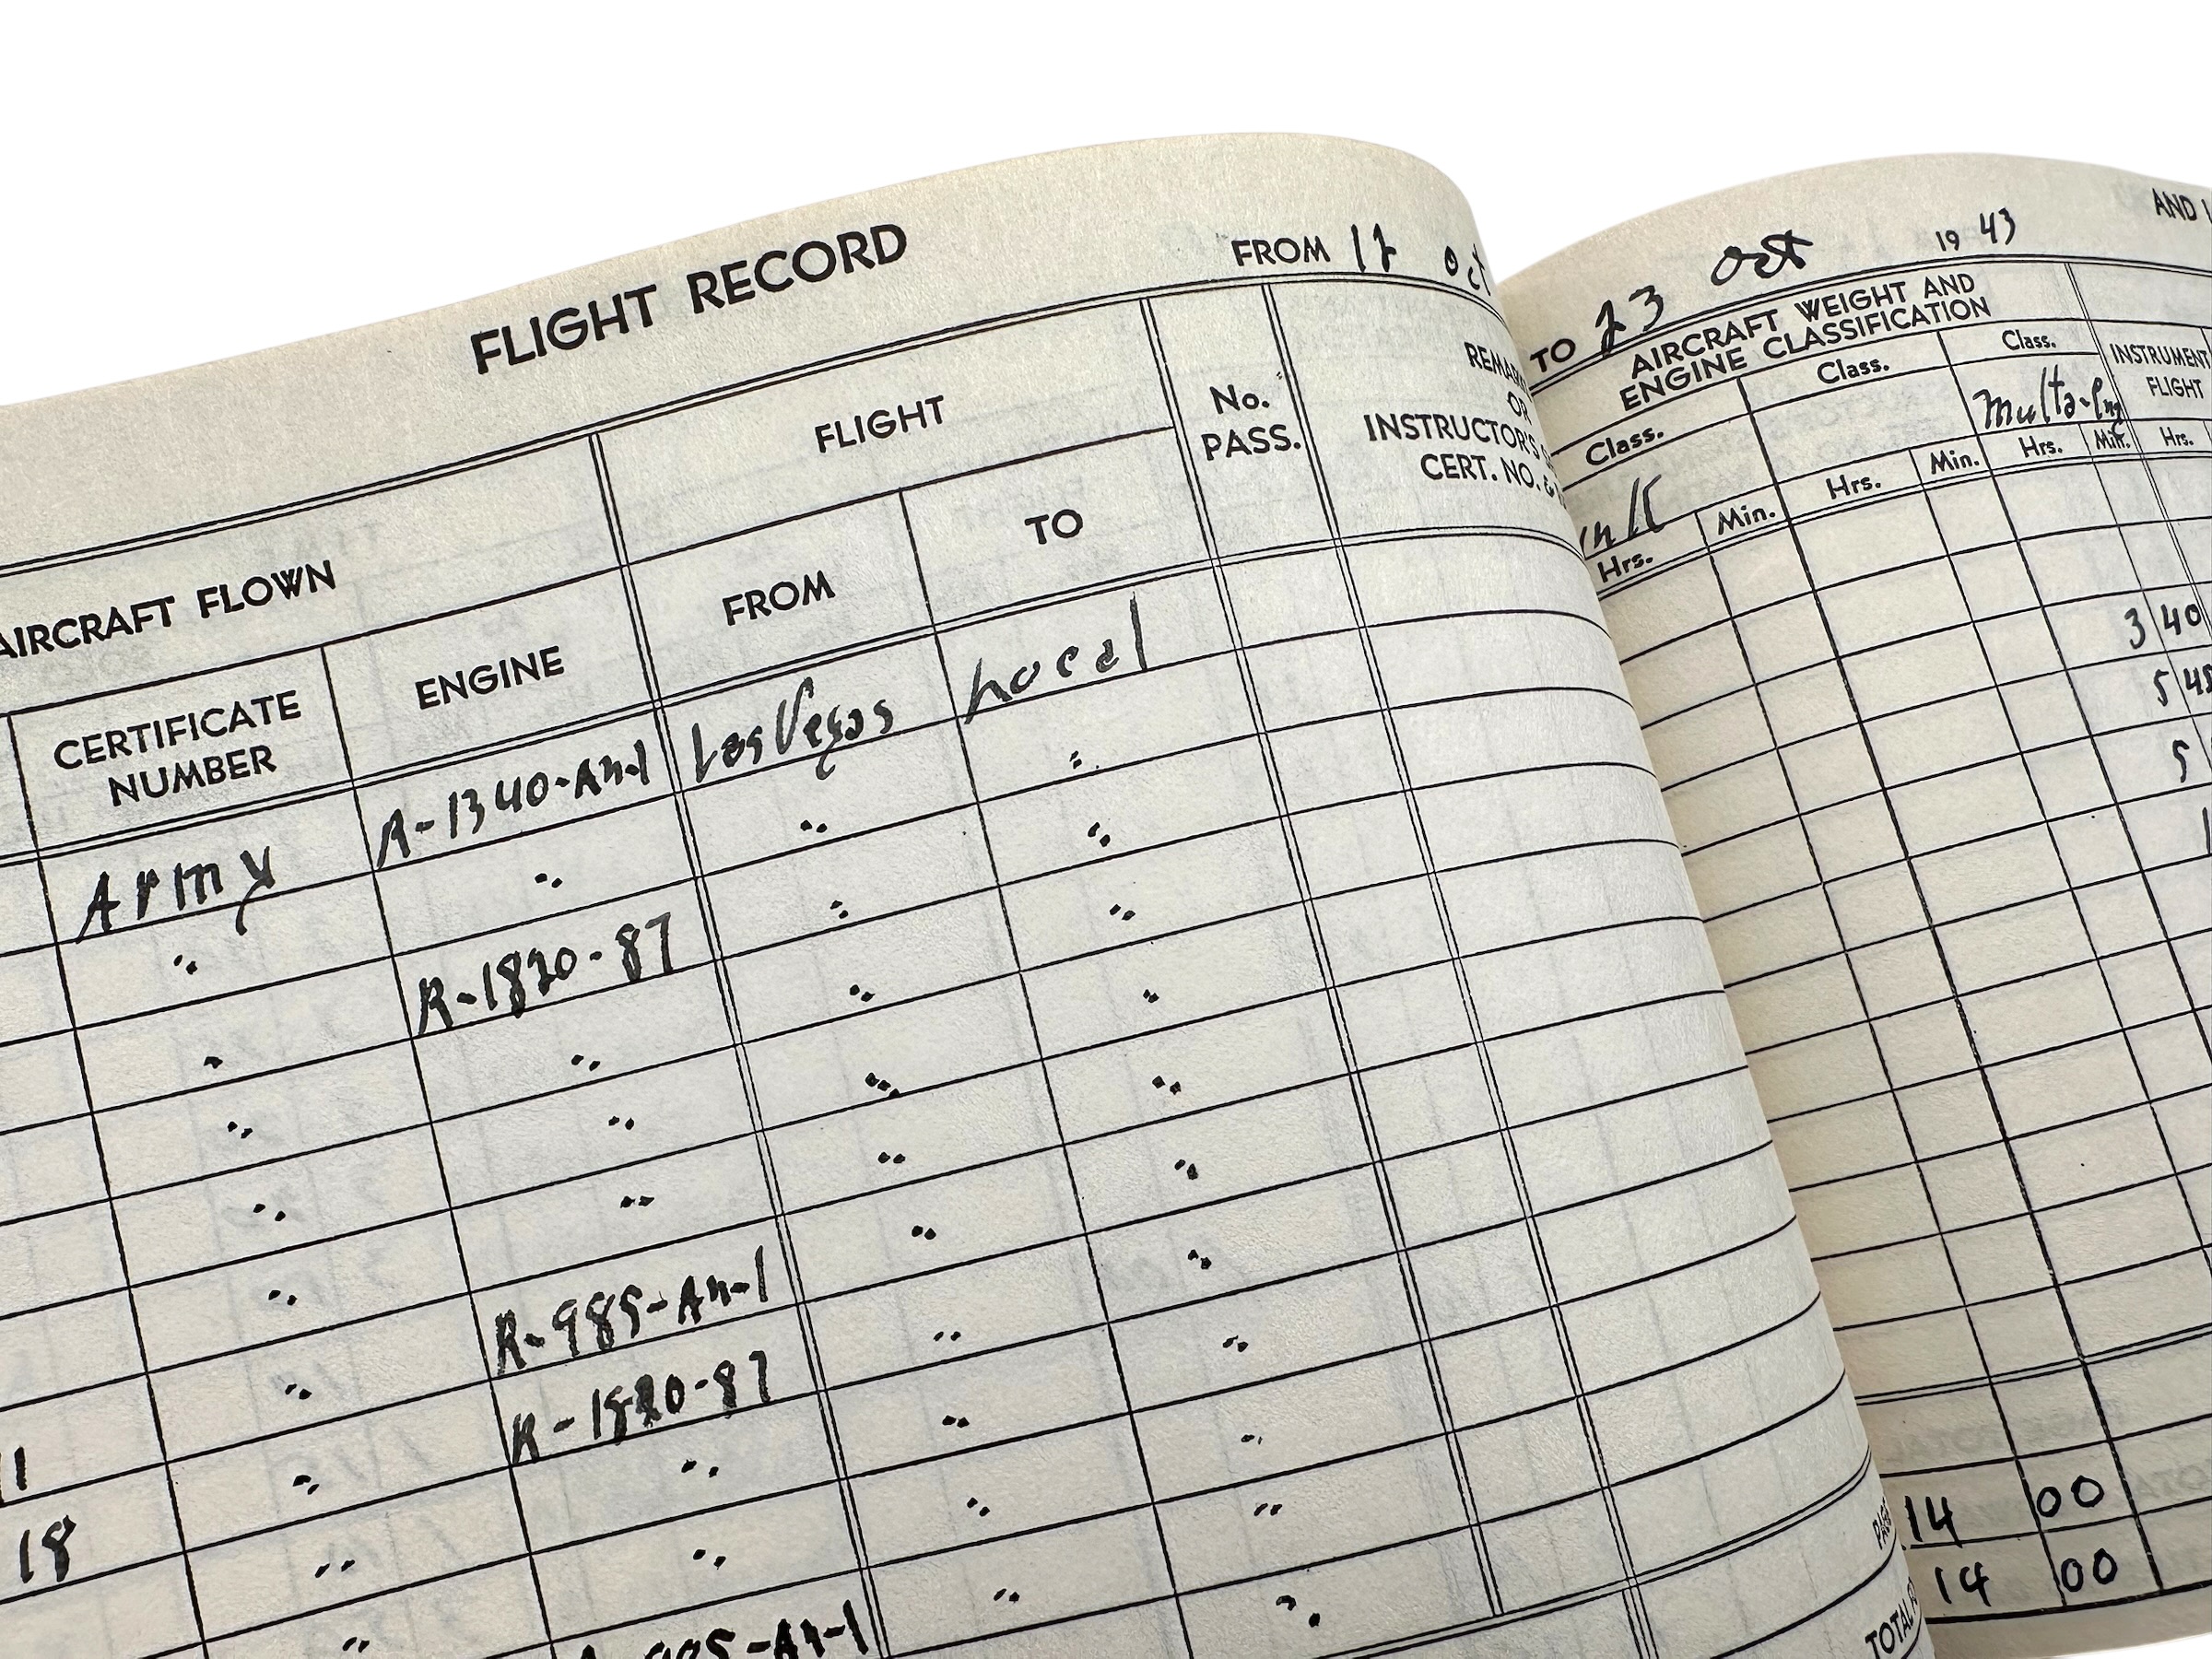 FLIGHT RECORD
FROM 12 Oct
AIRCRAFT FLOWN
FLIGHT
No.
PASS.
OR
INSTRUCTOR'S
CERT. NO. &
CERTIFICATE
NUMBER
ENGINE
FROM
TO
Army
R-1340-An-1
Las Vegas
Local
" " " "
" R-1820-87 " "
" " " "
" " " "
" " " "
" R-985-An-1 " "
11 " R-1820-87 " "
18 " " " "
" " " "
TO 23 Oct 1943
AND
AIRCRAFT WEIGHT AND
ENGINE CLASSIFICATION
Class.
Class.
Class.
Multi-Eng
INSTRUMENT
FLIGHT
Hrs. Min. Hrs. Min. Hrs. Min. Hrs.
3 40
5 45
5
1
14 00
14 00
TOTAL